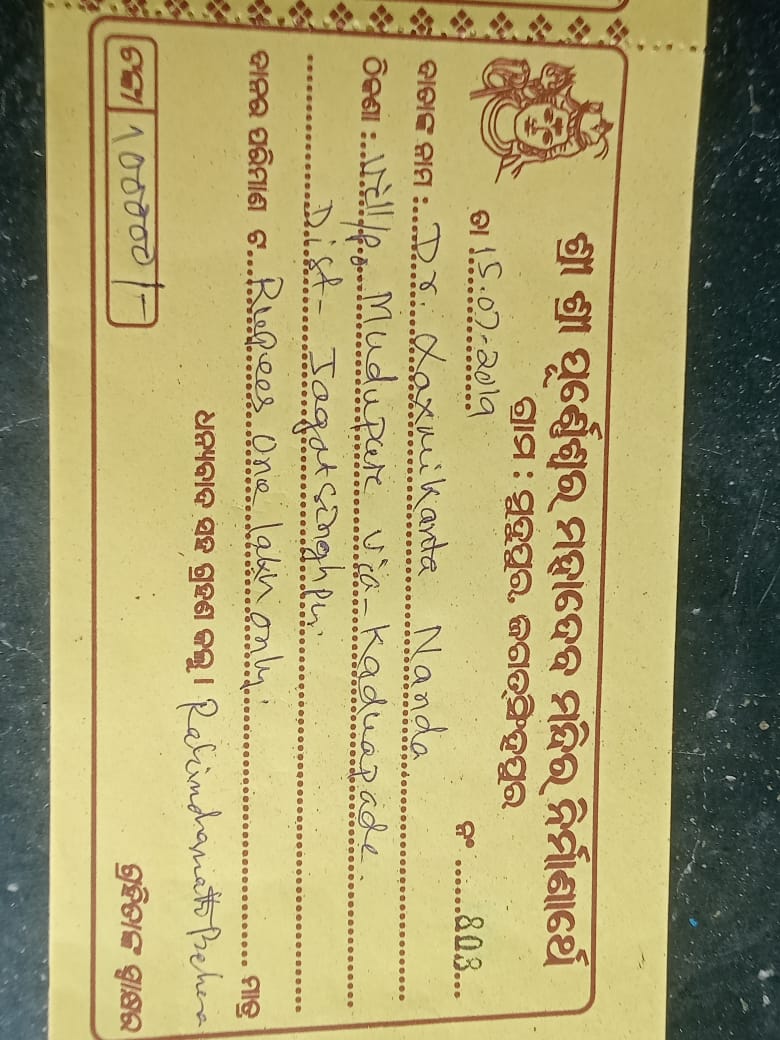 ଶ୍ରୀ ଶ୍ରୀ ଘୁଟେଶ୍ୱର ମହାଦେବଙ୍କ ମନ୍ଦିର ନିର୍ମାଣାର୍ଥେ
ଗ୍ରାମ : ମୁଦୁପୁର, ଜଗତସିଂହପୁର
ତା 15.07-2019 ନଂ 803
ଦାତାଙ୍କ ନାମ : Dr. Laxmikanta Nanda
ଠିକଣା : Vill/Po Mudupur Via-Kaduapada.
Dist- Jagatsinghpur.
ଦାନର ପରିମାଣ ଟ. Rupees One lakh only. ମାତ୍ର
ଧନ୍ୟବାଦ ସହ ଗ୍ରହଣ କଲୁ । Rabindranath Behera
ଟଙ୍କା 100000/-
ଗ୍ରହିତାଙ୍କ ସ୍ୱାକ୍ଷର